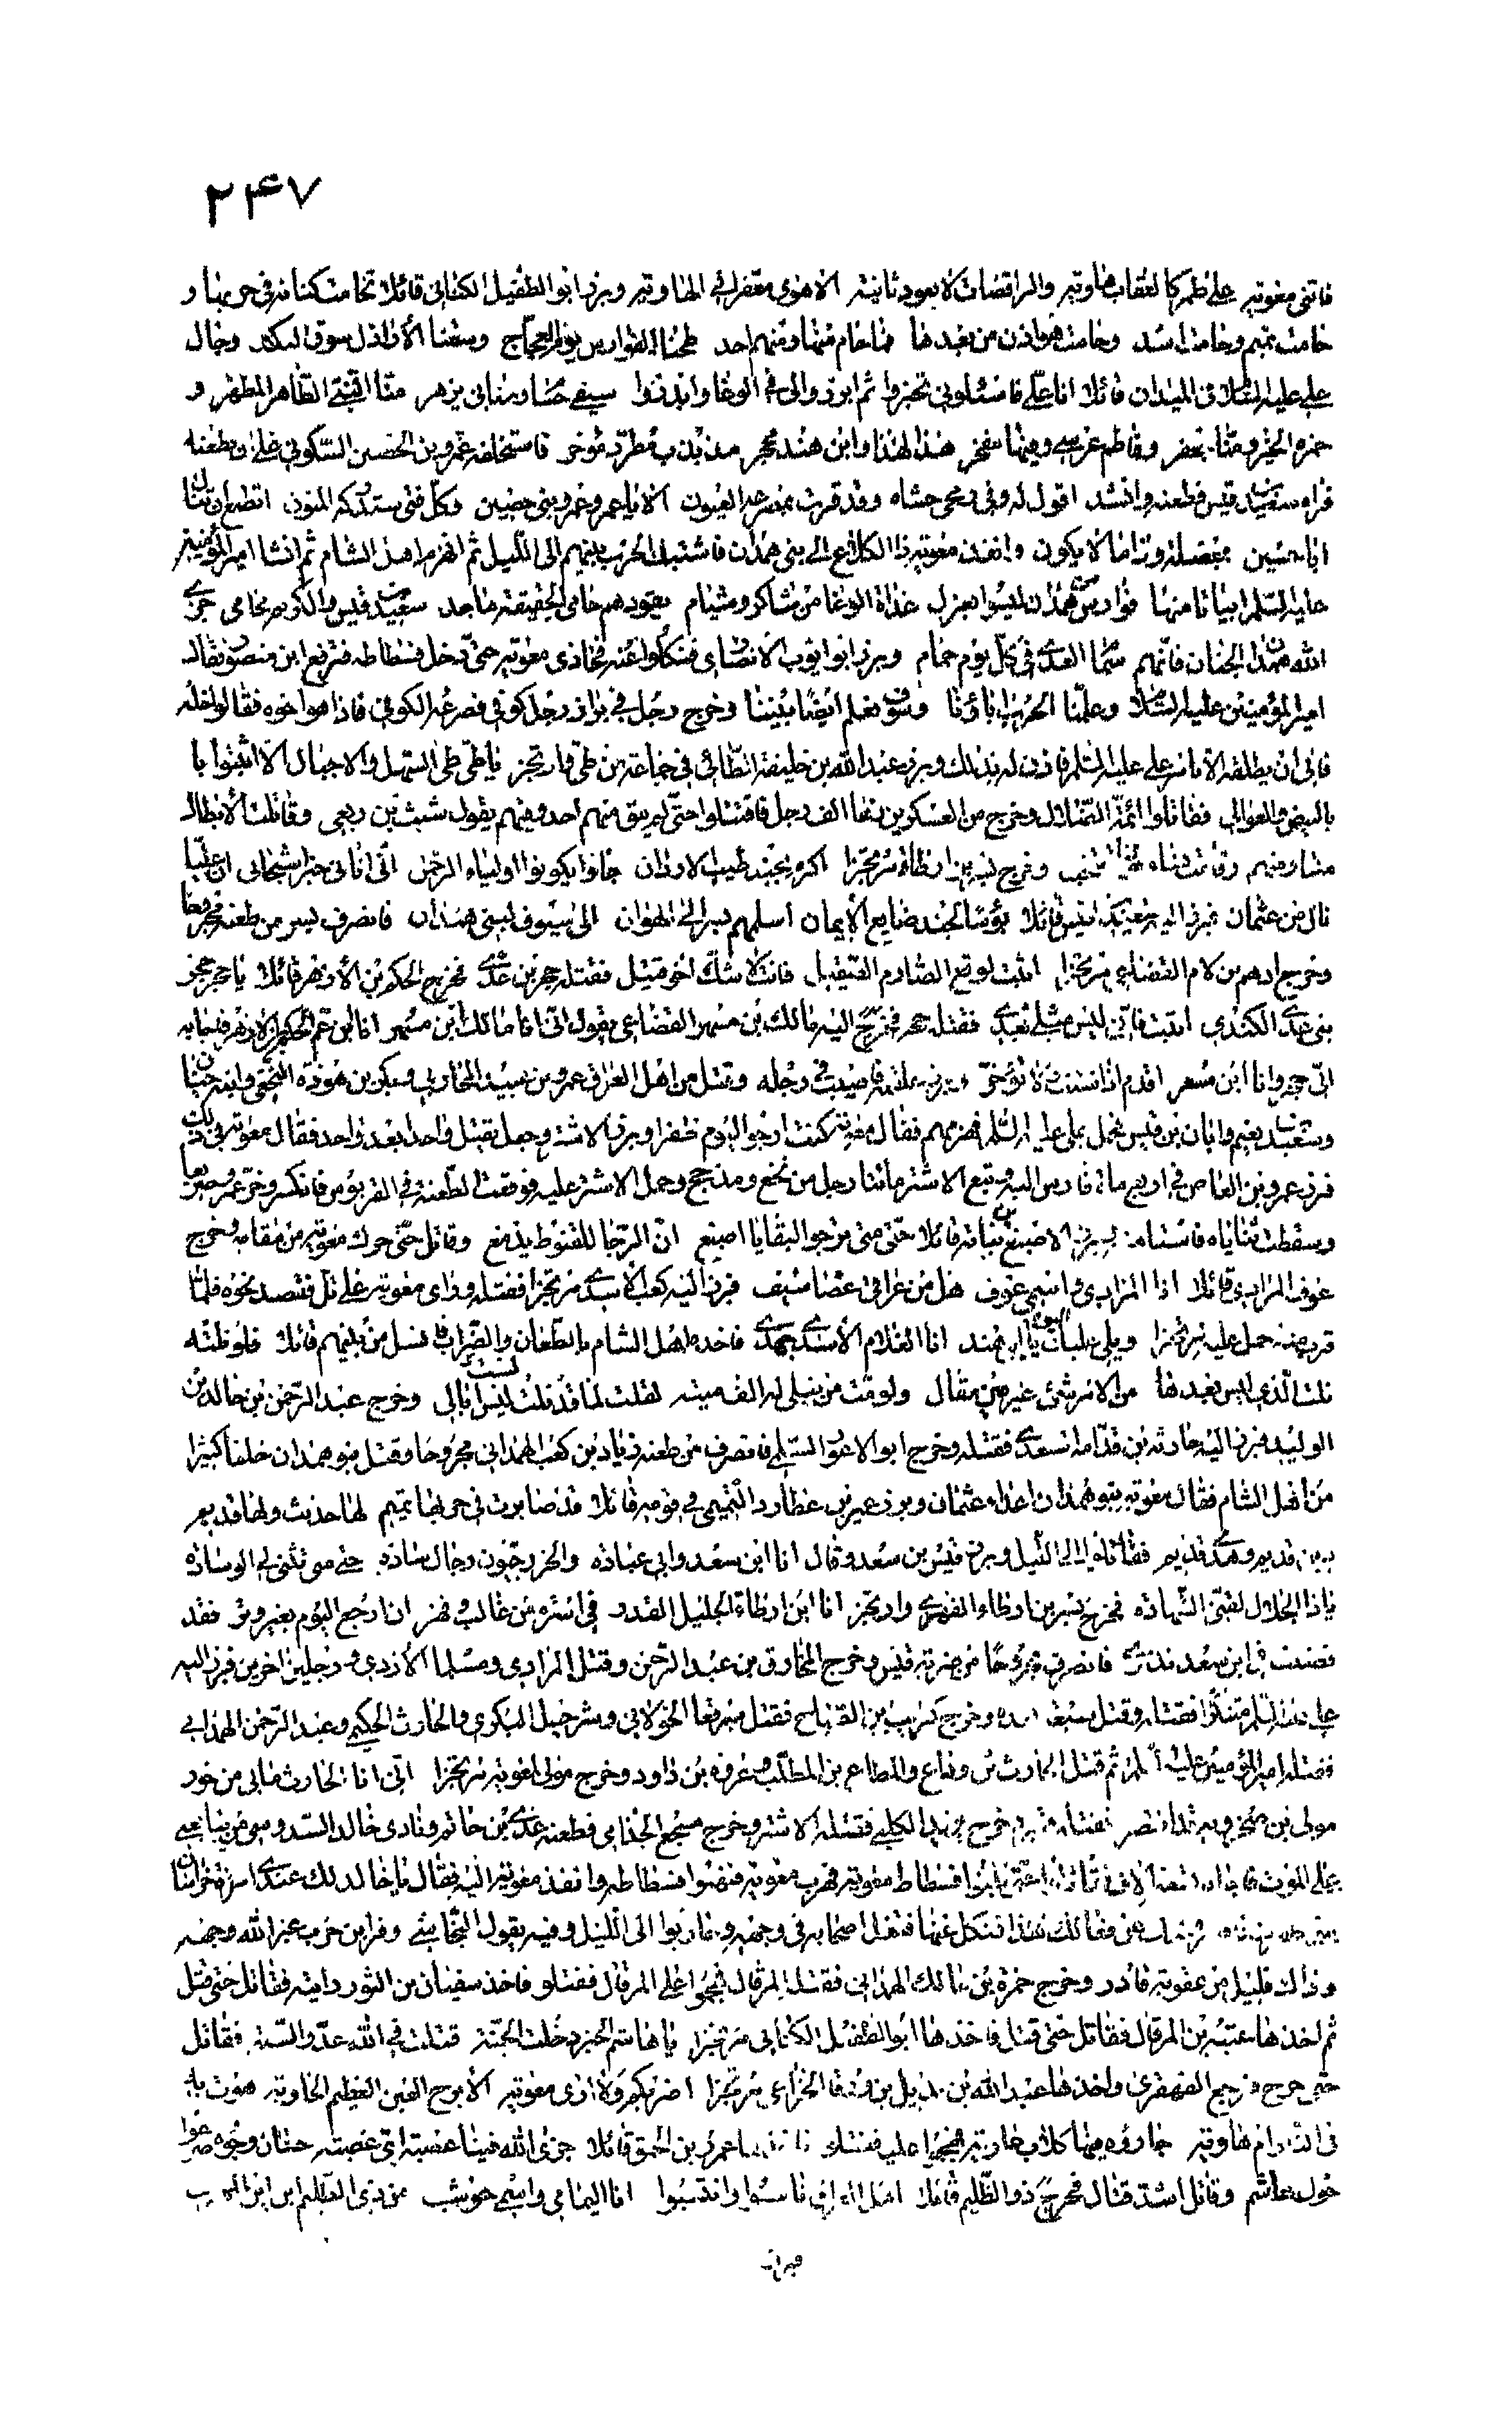 ٢۴٧
فاتني معوية على طمر كالعقاب هاوية والراقصات لا يعود ثانية الا هوى معفرا في الهاوية وبرز ابو الطفيل الكناني قائلا تحامت كنانة في حربها و
حامت تميم وحامت اسد وحامت هوازن من بعدها فما حام منها ومنهم احد طحنا الفوارس يوم العجاج وسقنا الأراذل سوق النكد وجال
علي عليه السلام في الميدان قائلا انا علي فاسئلوني تخبروا ثم ابرزوا لي في الوغا وابدروا سيفي حسام وسناني يزهر منا النبي الطاهر المطهر و
حمزة الخير ومنا جعفر وفاطم عرسي وفيها مفخر هذا لهذا وابن هند محجر مذبذب مطرد مؤخر فاستخلفه عمرو بن الحصين السكوني على ان يطعنه
فراه سعيد بن قيس فطعنه وانشد اقول له وفي رمحي حشاه وقد قرت بمصرعه العيون الا يا عمرو عمرو بني حصين وكل فتى ستدركه المنون اتطمع ان تنال
ابا حسين بمعضلة وذا ما لا يكون وانفذ معوية ذا الكلاع الى بني همدان فاشتبك الحرب بينهم الى الليل ثم انهزم اهل الشام ثم انشا امير المؤمنين
عليه السلم ابياتا منها فوارس من همدان ليسوا بعزل غداة الوغا من شاكر وشبام يقودهم حامي الحقيقة ماجد سعيد بن قيس والكريم محامي جزى
الله همدان الجنان فانهم سمام العدى في كل يوم حمام وبرز ابو ايوب الانصاري فنكلوا عنه فحاذى معوية حتى دخل فسطاطه فترفع ابن منصور فقال
امير المؤمنين عليه السلام وعلمنا الحرب اباؤنا وسوف نعلم ايضا بنينا وخرج رجل في براز رجل كوفي فصرعه الكوفي فاذا هو اخوه فقالوا خله
فابى ان يطلقه الا بامر علي عليه السلم فاذن له بذلك وبرز عبد الله بن خليفة الطائي في جماعة من طي وارتجز يا طي طي السهل والاجبال الا اثبتوا با
بالبيض والعوالي فقاتلوا ائمة الضلال وخرج من العسكرين زها الف رجل فاقتتلوا حتى لم يبق منهم احد وفيهم يقول شبث بن ربعي وقاتلت الأبطال
منا ومنهم وقامت نساء وخرج بسر بن ارطاة مرتجزا اكرم بجند طيب الاردان جاؤا يكونوا اولياء الرحمن اني اتاني خبر اشجاني ان عليا
نال من عثمان فبرز اليه سعيد بن قيس قائلا بؤسا لجند ضايع الأيمان اسلمهم بسر الى الهوان الى سيوف لبني همدان فانصرف بسر من طعنه مجروحا
وخرج ادهم بن لام القضاعي مرتجزا اثبت لوقع الصارم الصيقل فانت لا شك اخو قتيل فقتله حجر بن عدي فخرج الحكم بن الأزهر قائلا يا حجر حجر
بني عدي الكندي اثبت فاني ليس مثلي بعدي فقتله حجر فخرج اليه مالك بن مسهر القضاعي ويقول اني انا مالك ابن مسهر انا ابن عم الحكم الازهر فاجابه
اني حجر وانا ابن مسعر اقدم اذا شئت ولا تؤخر وبرز علقمة فاصيب في رجله وقتل من اهل العراق عمرو بن عبيد المحاربي وبكر بن هوذة النخعي وابنه حيان
وسعيد بن نعيم وابان بن قيس فحمل علي عليه السلم فهزمهم فقال معوية كنت ارجو اليوم ظفرا وبرز الاشتر وجعل يقتل واحدا بعد واحد فقال معوية في ذلك
فبرز عمرو بن العاص في اربع مائة فارس اليه وتبع الاشتر مائتا رجل من نخع ومذحج وحمل الاشتر عليه فوقعت الطعنة في القربوس فانكسر وخر عمرو صريعا
وسقطت ثناياه فاستامنه وبرز الاصبغ بن نباتة قائلا حتى متى ترجو البقايا اصبغ ان الرجا للقنوط يدمغ وقاتل حتى حرك معوية من مقامه وخرج
عوف المرادي قائلا انا المرادي واسمي عوف هل من عراقي عصا سيف فبرز اليه كعب الأسدي مرتجزا فقتله وراى معوية على تل فقصد نحوه فلما
قرب منه حمل عليه مرتجزا ويلي عليك يا ابن هند انا الغلام الأسدي حمدي فاخذه اهل الشام بالطعان والضراب فانسل من بينهم قائلا فلو ظنته
نلت الذي ليس بعدها من الامر شئ غير مين مقال ولو مت من نيلي له الف ميتة لقلت لما قد نلت ليس ابالي وخرج عبد الرحمن بن خالد بن
الوليد فبرز اليه حارثة بن قدامة السعدي فقتله وخرج ابو الاعور السلمي فانصرف من طعنه زياد بن كعب الهمداني مجروحا وقتل بنو همدان خلقا كثيرا
من اهل الشام فقال معوية بنو همدان اعداء عثمان وبرز عمير بن عطارد التميمي في قومه قائلا قد ضاربت في حربها تميم لها حديث ولها قديم
دين قديم وهدى قديم فقاتلوا الى الليل وبرز قيس بن سعد وقال انا ابن سعد وابي عبادة والخزرجيون رجال سادة حتى متى تثنى لي الوسادة
يا ذا الجلال لقني الشهادة فخرج بسر بن ارطاة الفهري وارتجز انا ابن ارطاة الجليل القدر في اسرة من غالب وفهر ان ارجع اليوم بغير وتر فقد
قضيت في ابن سعد نذري فانصرف مجروحا من ضربة قيس وخرج المخارق بن عبد الرحمن وقتل المرادي ومسلما الأزدي ورجلين اخرين فبرز اليه
علي عليه السلم متنكرا فقتله وقتل سبعة بعده وخرج كريب بن الصباح فقتل مبرقعا الخولاني وشرحبيل البكري والحارث الحكيمي وعبد الرحمن الهمداني
فقتله امير المؤمنين عليه السلم ثم قتل الحارث بن وداع والمطاع بن المطلب وعروة بن داود وخرج مولى لمعوية مرتجزا اني انا الحارث مابي من خور
مولى ابن صخر وبه قد انتصر فقتله قنبر وخرج يزيد الكلبي فقتله الاشتر وخرج مسجع الجذامي فطعنه عدي بن حاتم ونادى خالد السدوسي من يبايعني
على الموت فاجابه تسعة الاف فقاتلوا حتى بلغوا فسطاط معوية فهرب معوية فنهبوا فسطاطه وانفذ معوية اليه فقال يا خالد لك عندي امرة خراسان
فقال فنكل عنها فتفل اصحابه في وجهه وحاربوا الى الليل وفيه يقول النجاشي وفر ابن حرب عفر الله وجهه
وذاك قليل من عقوبة قادر وخرج حمزة بن مالك الهمداني فقتل المرقال فهجموا على المرقال فقتلوه فاخذ سفيان بن الثور رايته فقاتل حتى قتل
ثم اخذها عتبة بن المرقال فقاتل حتى قتل فاخذها ابو الطفيل الكناني مرتجزا يا هاشم الخير دخلت الجنة قتلت في الله عدو السنة فقاتل
حتى جرح فرجع القهقرى واخذها عبد الله بن بديل بن ورقا الخزاعي مرتجزا اضربكم ولا ارى معوية الأبرج العين العظيم الحاوية هوت به
في النار ام هاوية جاوره فيها كلاب عاوية فهجموا عليه فقتلوه فاخذها عمرو بن الحمق قائلا جزى الله فينا عصبة اي عصبة حسان وجوه صرعوا
حول هاشم وقاتل اشد قتال فخرج ذو الظليم قائلا اهل العراق ناسبوا وانتسبوا انا اليماني واسمي حوشب من ذي الظليم اين اين المهرب